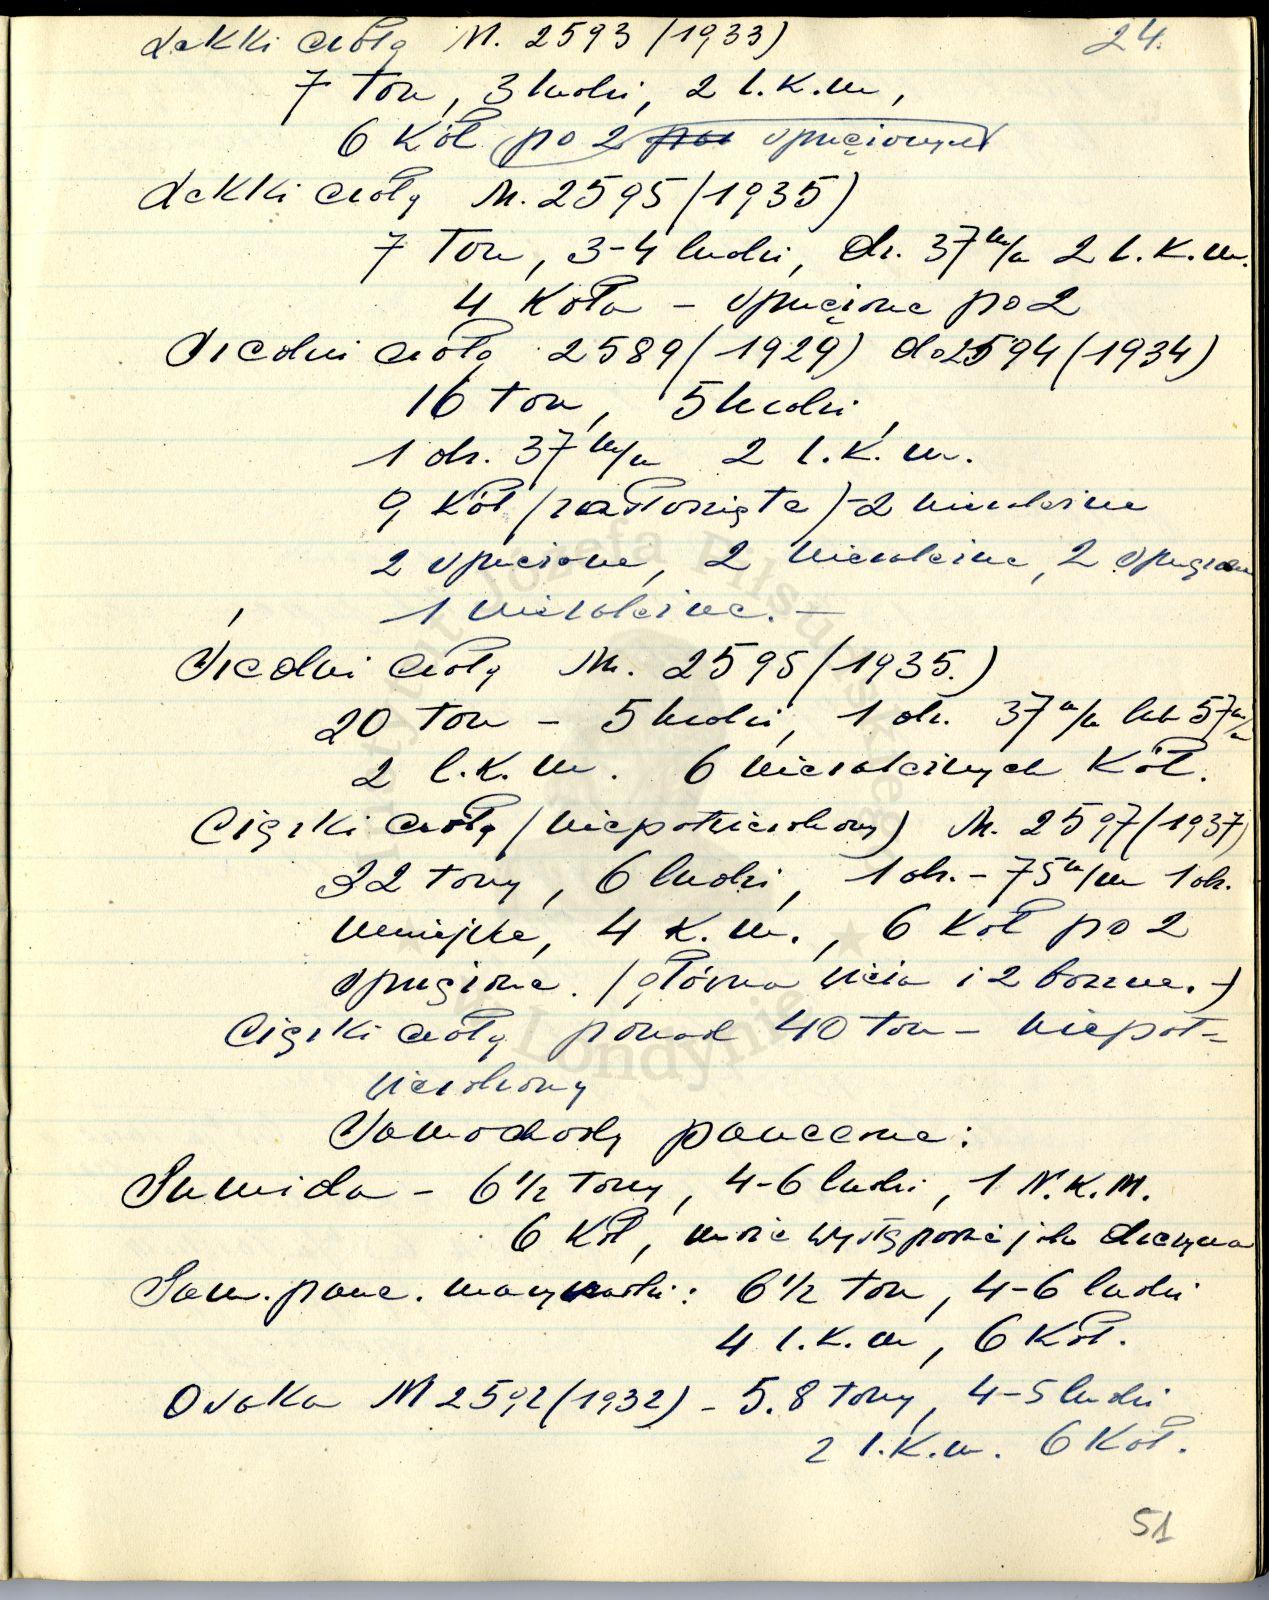 24.
Lekki czołg M. 2593 (1933)
7 ton, 3 ludzi, 2 l.k.m,
6 kół po 2 sprzężonych
Lekki czołg M. 2595 (1935)
7 ton, 3-4 ludzi, dz. 37 m/m 2 l.k.m.
4 koła – sprzężone po 2
Średni czołg 2589 (1929) do 2594 (1934)
16 ton, 5 ludzi,
1 dz. 37 m/m 2 l.k.m.
9 kół (zasłonięte) – 2 niezależne
2 sprzężone, 2 niezależne, 2 sprzężone
1 niezależne. –
Średni czołg M. 2595 (1935.)
20 ton – 5 ludzi, 1 dz. 37 m/m lub 57 m/m
2 l.k.m. 6 niezależnych kół.
Ciężki czołg (niepotwierdzony) M. 2597 (1937)
32 tony, 6 ludzi, 1 dz. – 75 m/m 1 dz.
mniejsze, 4 k.m., 6 kół po 2
sprzężone. (główna wieża i 2 boczne. –)
Ciężki czołg ponad 40 ton – niepot-
wierdzony
Samochody pancerne:
Sumida – 6 1/2 tony, 4-6 ludzi, 1 N.K.M.
6 kół, może występować jako drezyna
Sam. panc. marynarki: 6 1/2 ton, 4-6 ludzi
4 l.k.m, 6 kół.
Osaka M 2592 (1932) – 5.8 tony, 4-5 ludzi
2 l.k.m. 6 kół.
51
Instytut Józefa Piłsudskiego
w Londynie